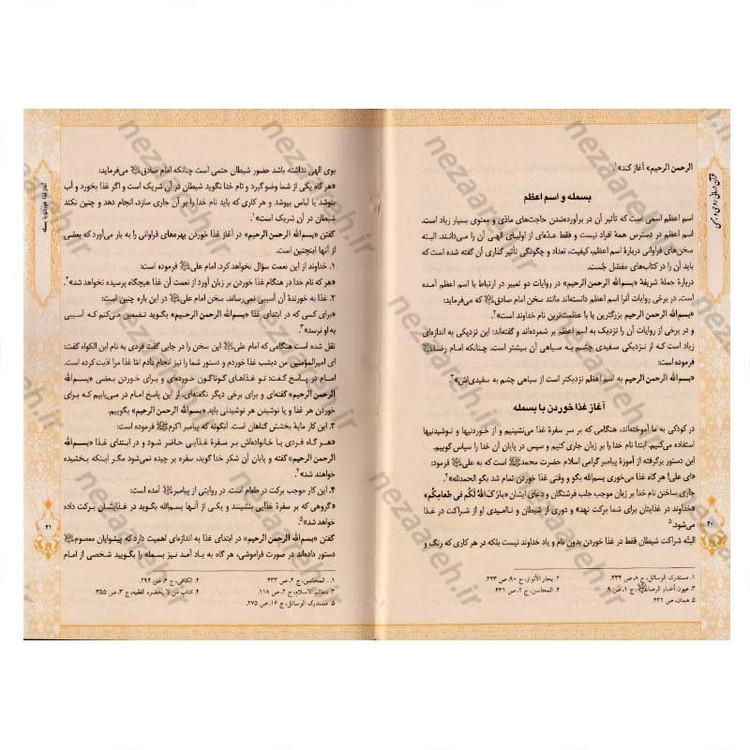 الرحمن الرحیم» آغاز کند»¹.
بسمله و اسم اعظم
اسم اعظم اسمی است که تأثیر آن در برآورده‌شدن حاجت‌های مادّی و معنوی بسیار زیاد است.
اسم اعظم در دسترس همهٔ افراد نیست و فقط عدّه‌ای از اولیای الهی آن را می‌دانند. البته
سخن‌های فراوانی دربارهٔ اسم اعظم، کیفیت، تعداد و چگونگی تأثیر گذاری آن گفته شده است که
باید آن را در کتاب‌های مفصّل جُست.
دربارهٔ جملهٔ شریفهٔ «بسم‌الله الرحمن الرحیم» در روایات دو تعبیر در ارتباط با اسم اعظم آمده
است. در برخی از روایات آنرا اسم اعظم دانسته‌اند مانند سخن امام صادق که می‌فرماید:
«بسم‌الله الرحمن الرحیم بزرگترین یا با عظمت‌ترین نام خداوند است»².
و در برخی از روایات آن را نزدیک به اسم اعظم بر شمرده‌اند و گفته‌اند: این نزدیکی به اندازه‌ای
زیاد است که از نزدیکی سفیدی چشم به سیاهی آن بیشتر است. چنانکه امام رضا
فرموده است:
«بسم‌الله الرحمن الرحیم به اسم اعظم نزدیکتر است از سیاهی چشم به سفیدی‌اش»³.
آغاز غذا خوردن با بسمله
در کودکی به ما آموخته‌اند، هنگامی که بر سر سفرهٔ غذا می‌نشینیم و از خوردنیها و نوشیدنیها
استفاده می‌کنیم. ابتدا نام خدا را بر زبان جاری کنیم و سپس در پایان آن خدا را سپاس گوییم.
این دستور برگرفته از آموزهٔ پیامبر گرامی اسلام حضرت محمد است که به علی فرمود:
«ای علی! هر گاه غذا می‌خوری بسم‌الله بگو و وقتی غذا خوردن تمام شد بگو الحمدلله»⁴.
جاری ساختن نام خدا بر زبان موجب جلب فرشتگان و دعای ایشان «بارَکَ اللهُ لَکُم فی طَعامِکُم»
«خداوند در غذایتان برای شما برکت نهد» و دوری از شیطان و ناامیدی او از شراکت در غذا
می‌شود⁵
البته شراکت شیطان فقط در غذا خوردن بدون نام و یاد خداوند نیست بلکه در هر کاری که رنگ و
۱. مستدرک الوسائل، ج ۸، ص ۴۳۴.
۲. بحار الأنوار، ج ۹۰، ص ۲۲۳.
۳. عیون أخبار الرضا، ج ۱، ص ۹
۴. المحاسن، ج ۲، ص ۴۳۱
۵. همان، ص ۴۳۲.
۴۰
بوی الهی نداشته باشد حضور شیطان حتمی است چنانکه امام صادق می‌فرماید:
«هر گاه یکی از شما وضو گیرد و نام خدا نگوید شیطان در آن شریک است و اگر غذا بخورد و آب
بنوشد یا لباس بپوشد و هر کاری که باید نام خدا را بر آن جاری سازد، انجام دهد و چنین نکند
شیطان در آن شریک است»¹.
گفتن «بسم‌الله الرحمن الرحیم» در آغاز غذا خوردن بهره‌های فراوانی را به بار می‌آورد که بعضی
از آنها اینچنین است.
۱. خداوند از این نعمت سؤال نخواهد کرد. امام علی فرموده است:
«هر کس نام خدا در هنگام غذا خوردن بر زبان آورد از نعمت آن غذا هیچگاه پرسیده نخواهد شد»².
۲. غذا به خورندهٔ آن آسیبی نمی‌رساند. سخن امام علی در این باره چنین است:
«برای کسی که در ابتدای غذا «بسم‌الله الرحمن الرحیم» بگوید تضمین می‌کنم که آسیبی
به او نرسد»³.
نقل شده است هنگامی که امام علی این سخن را در جایی گفت فردی به نام ابن الکواء گفت:
ای امیرالمؤمنین من دیشب غذا خوردم و دستور شما را نیز انجام دادم امّا غذا مرا اذیت کرده است.
امام در پاسخ گفت: تو غذاهای گوناگون خورده‌ای و برای خوردن بعضی «بسم‌الله
الرحمن الرحیم» گفته‌ای و برای برخی دیگر نگفته‌ای. از این پاسخ امام در می‌یابیم که برای
خوردن هر غذا و یا نوشیدن هر نوشیدنی باید «بسم‌الله الرحمن الرحیم» بگوییم.
۳. این کار مایهٔ بخشش گناهان است. آنگونه که پیامبر اکرم فرموده است:
«هر گاه فردی با خانواده‌اش بر سفرهٔ غذایی حاضر شود و در ابتدای غذا «بسم‌الله
الرحمن الرحیم» گفته و پایان آن شکر خدا گوید، سفره بر چیده نمی‌شود مگر اینکه بخشیده
خواهند شد»⁴.
۴. این کار موجب برکت در طعام است. در روایتی از پیامبر آمده است:
«گروهی که بر سفرهٔ غذایی بنشینند و یکی از آنها بسم‌الله بگوید در غذایشان برکت داده
خواهد شد»⁵
گفتن «بسم‌الله الرحمن الرحیم» در ابتدای غذا به اندازه‌ای اهمیت دارد که پیشوایان معصوم
دستور داده‌اند در صورت فراموشی، هر گاه به یاد آمد نیز بسمله را بگویید شخصی از امام
۱. المحاسن، ج ۲، ص ۴۳۳
۲. الکافی، ج ۶، ص ۲۹۴.
۳. دعائم الاسلام، ج ۲، ص ۱۱۸.
۴. کتاب من لا یحضره الفقیه، ج ۳، ص ۳۵۵
۵. مستدرک الوسائل، ج ۱۶، ص ۲۷۵
۴۱
nezaareh.ir